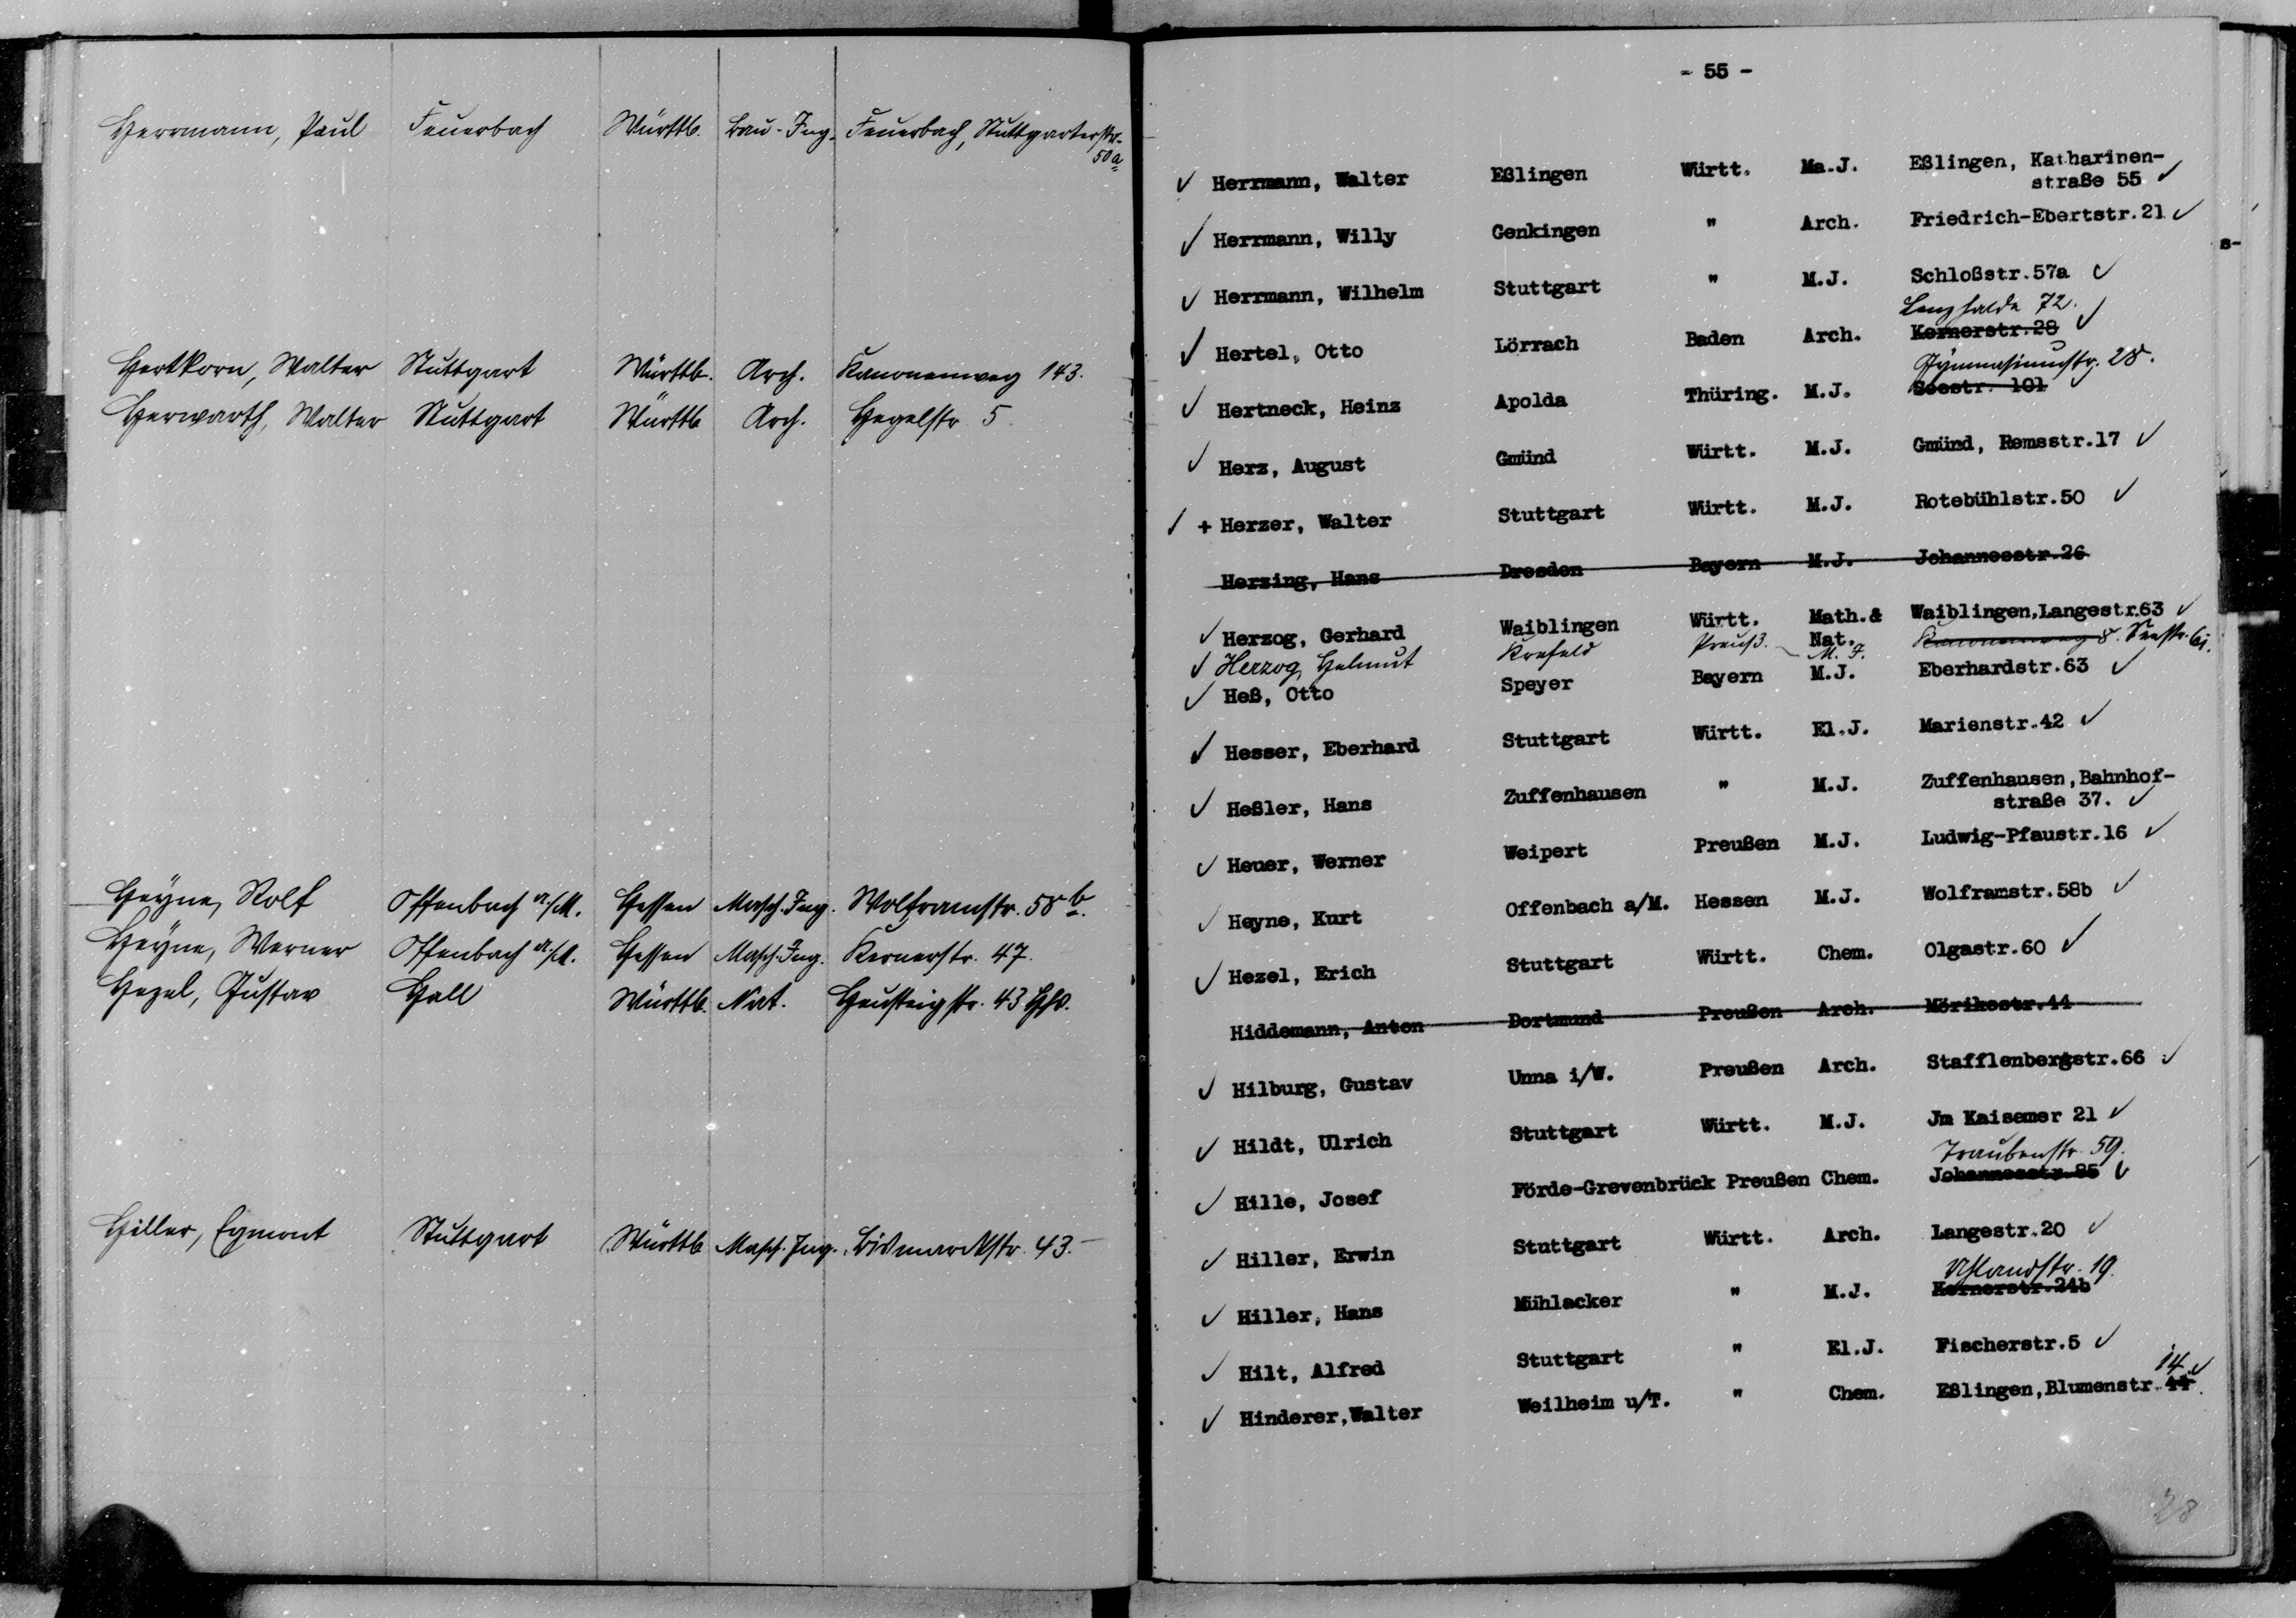 Herrmann, Paul Feuerbach Württb. Bau-Ing. Feuerbach, Stuttgarterstr.
50a
Hertkorn, Walter Stuttgart Württb. Arch. Kanonenweg 143.
Herwarth, Walter Stuttgart Württb Arch. Hegelstr 5.
Heyne, Rolf Offenbach a/M. Hessen Masch.Ing. Wolframstr. 58b.
Heyne, Werner Offenbach a/M. Hessen Masch.Ing. Kernerstr. 47.
Hezel, Gustav Hall Württb. Nat. Heusteigstr. 43 Hths.
Hiller, Egmont Stuttgart Württb Masch.Ing. Bismarckstr. 43.
- 55 -
✓ Herrmann, Walter Eßlingen Württ. Ma.J. Eßlingen, Katharinen-
straße 55 ✓
✓ Herrmann, Willy Genkingen " Arch. Friedrich-Ebertstr.21 ✓
✓ Herrmann, Wilhelm Stuttgart " M.J. Schloßstr.57a ✓
Lenzhalde 72.
✓ Hertel, Otto Lörrach Baden Arch. Kernerstr.28 ✓
Gymnasiumstr. 28.
✓ Hertneck, Heinz Apolda Thüring. M.J. Seestr. 101
✓ Herz, August Gmünd Württ. M.J. Gmünd, Remsstr.17 ✓
✓ + Herzer, Walter Stuttgart Württ. M.J. Rotebühlstr.50 ✓
Herzing, Hans Dresden Bayern M.J. Johannesstr.26
✓ Herzog, Gerhard Waiblingen Württ. Math.& Waiblingen,Langestr.63 ✓
Nat.
✓ Herzog, Helmut Krefeld Preuß. M.J. Kanonenweg 8. Seestr. 61.
✓ Heß, Otto Speyer Bayern M.J. Eberhardstr.63 ✓
✓ Hesser, Eberhard Stuttgart Württ. El.J. Marienstr.42 ✓
✓ Heßler, Hans Zuffenhausen " M.J. Zuffenhausen,Bahnhof-
straße 37. ✓
✓ Heuer, Werner Weipert Preußen M.J. Ludwig-Pfaustr.16 ✓
✓ Heyne, Kurt Offenbach a/M. Hessen M.J. Wolframstr.58b ✓
✓ Hezel, Erich Stuttgart Württ. Chem. Olgastr.60 ✓
Hiddemann, Anton Dortmund Preußen Arch. Mörikestr.44
✓ Hilburg, Gustav Unna i/W. Preußen Arch. Stafflenbergstr.66 ✓
✓ Hildt, Ulrich Stuttgart Württ. M.J. Jm Kaisemer 21 ✓
Traubenstr. 59.
✓ Hille, Josef Förde-Grevenbrück Preußen Chem. Johannesstr.85 ✓
✓ Hiller, Erwin Stuttgart Württ. Arch. Langestr.20 ✓
Uhlandstr. 19.
✓ Hiller, Hans Mühlacker " M.J. Kernerstr.24b
✓ Hilt, Alfred Stuttgart " El.J. Fischerstr.5 ✓
14 ✓
✓ Hinderer,Walter Weilheim u/T. " Chem. Eßlingen,Blumenstr.44.
28